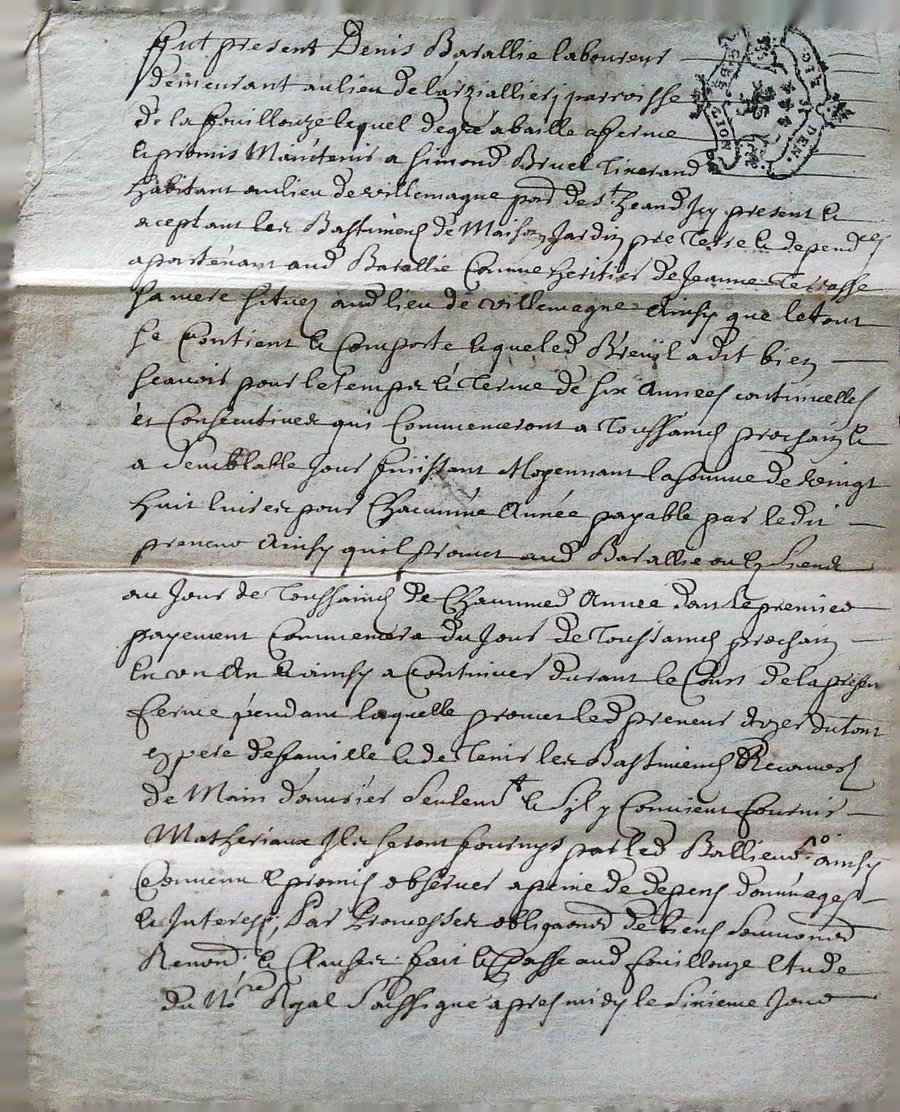 fut present Denis Barallie laboureur
demeurant au lieu de larziallierj parroisse
de la fouillouze lequel de gré a baille a ferme
et promis Maintenir a simond Bruel Tixerand
habitant au lieu de villemagne present et
aceptant les Bastimens de Maison Jardin pre Terre et depend.ces
apartenant aud Barallie Comme heritier de Jeanne Terrasse
sa mere situez aud lieu de villemagne Ainsy que le tout
se Contient et Comporte lequel led Breüil a dit bien
scavoir pour le temps et Terme de six Années continuelles
et Consecutives qui Commenceront a Toussaincs prochain et
a semblable Jour finissant Moyennant la somme de vingt
huit livres pour Chacunne Année payable par le dit
preneur Ainsy quil promet aud Barallie ou es siens
au Jour de Toussaincs de Chacunne Année dont le premier
payement Commencera du Jour de Toussaincs prochain
en un An et ainsy a Continuer durant le Cours de la presen
ferme pendant laquelle promet led preneur du tout
en pere de famille et de Tenir les Bastimens
de Main douvrier seulemt et sil y Convient fournir
Matheriaux Ils seront fournys par led Ballieur ainsy
Convenu et promis observer a peine de depens dommages
et Interests, Par Promesses obligaons de biens
Renond et Clauses fait et Passe aud fouillouze Etude
du Nre Royal soussigne apres midy le sixieme Jour